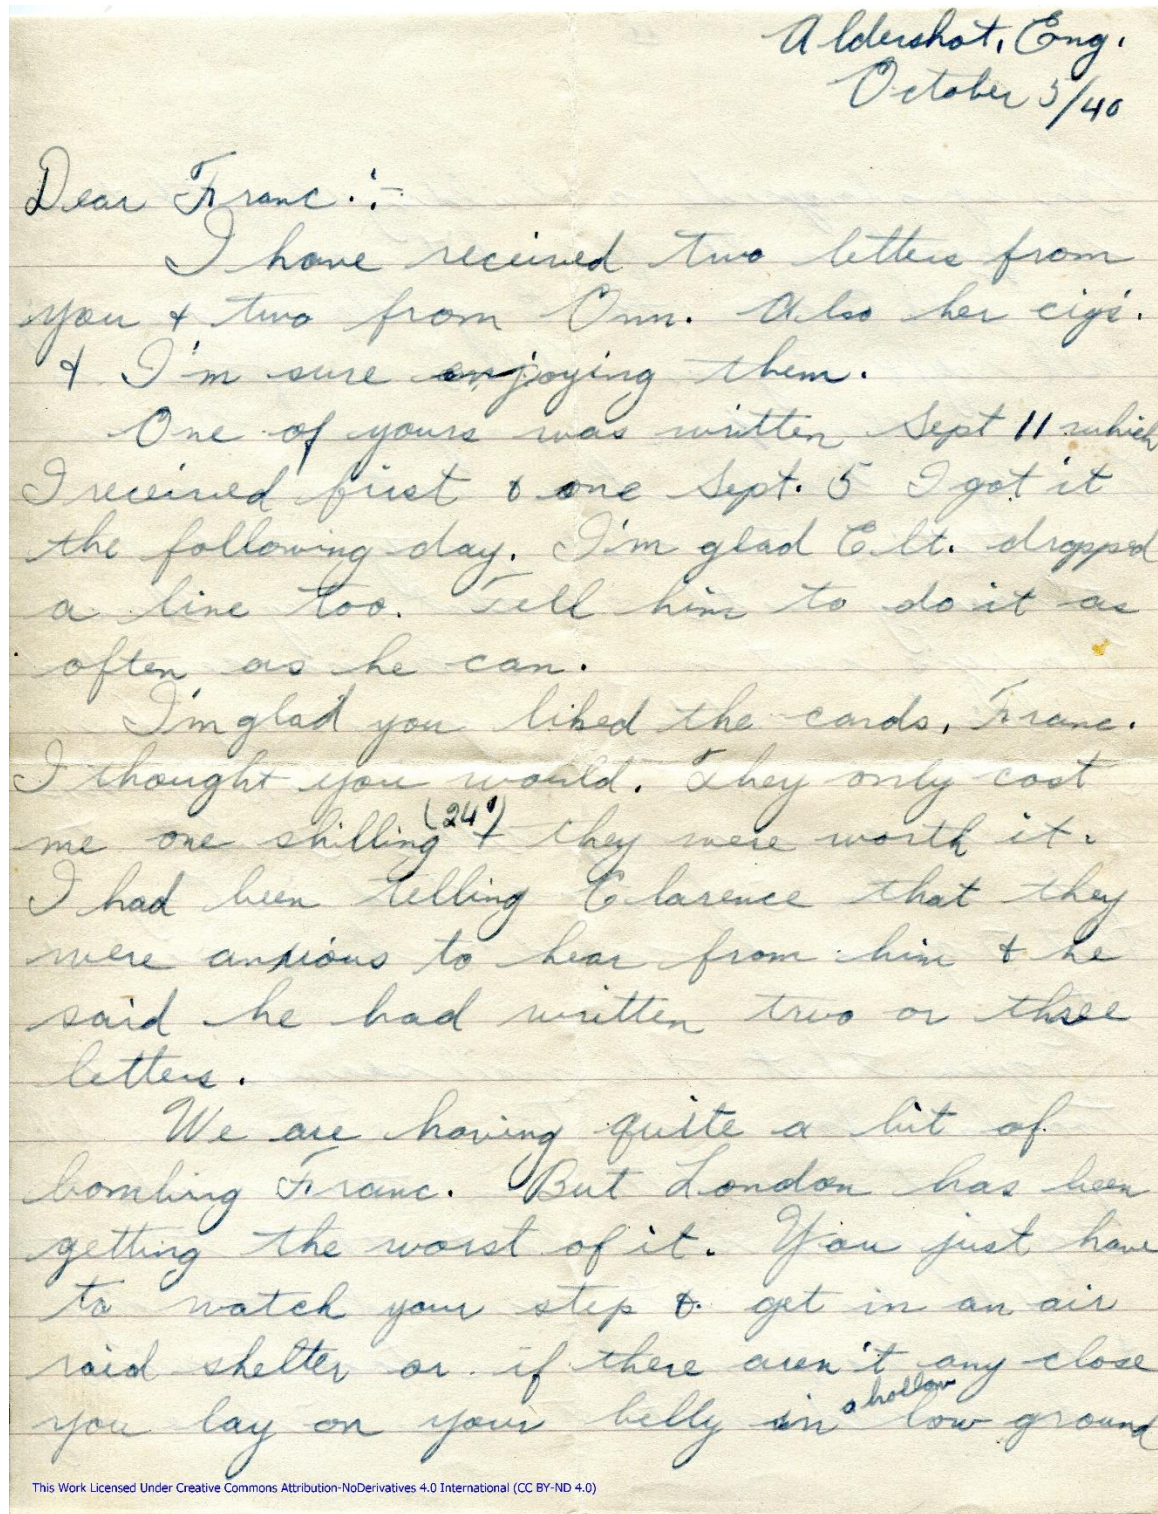 Aldershot, Eng.
October 3/40
Dear Franc.:-
I have received two letters from
you & two from Onn. Also her cigs.
& I'm sure enjoying them.
One of yours was written Sept 11 which
I received first & one Sept. 5 I got it
the following day. I'm glad Elt. dropped
a line too. Tell him to do it as
often as he can.
I'm glad you liked the cards, Franc.
I thought you would. They only cost
me one shilling (24¢) & they were worth it.
I had been telling Clarence that they
were anxious to hear from him & he
said he had written two or three
letters.
We are having quite a bit of
bombing Franc. But London has been
getting the worst of it. You just have
to watch your step & get in an air
raid shelter or if there aren't any close
you lay on your belly in a hollow low ground
This Work Licensed Under Creative Commons Attribution-NoDerivatives 4.0 International (CC BY-ND 4.0)